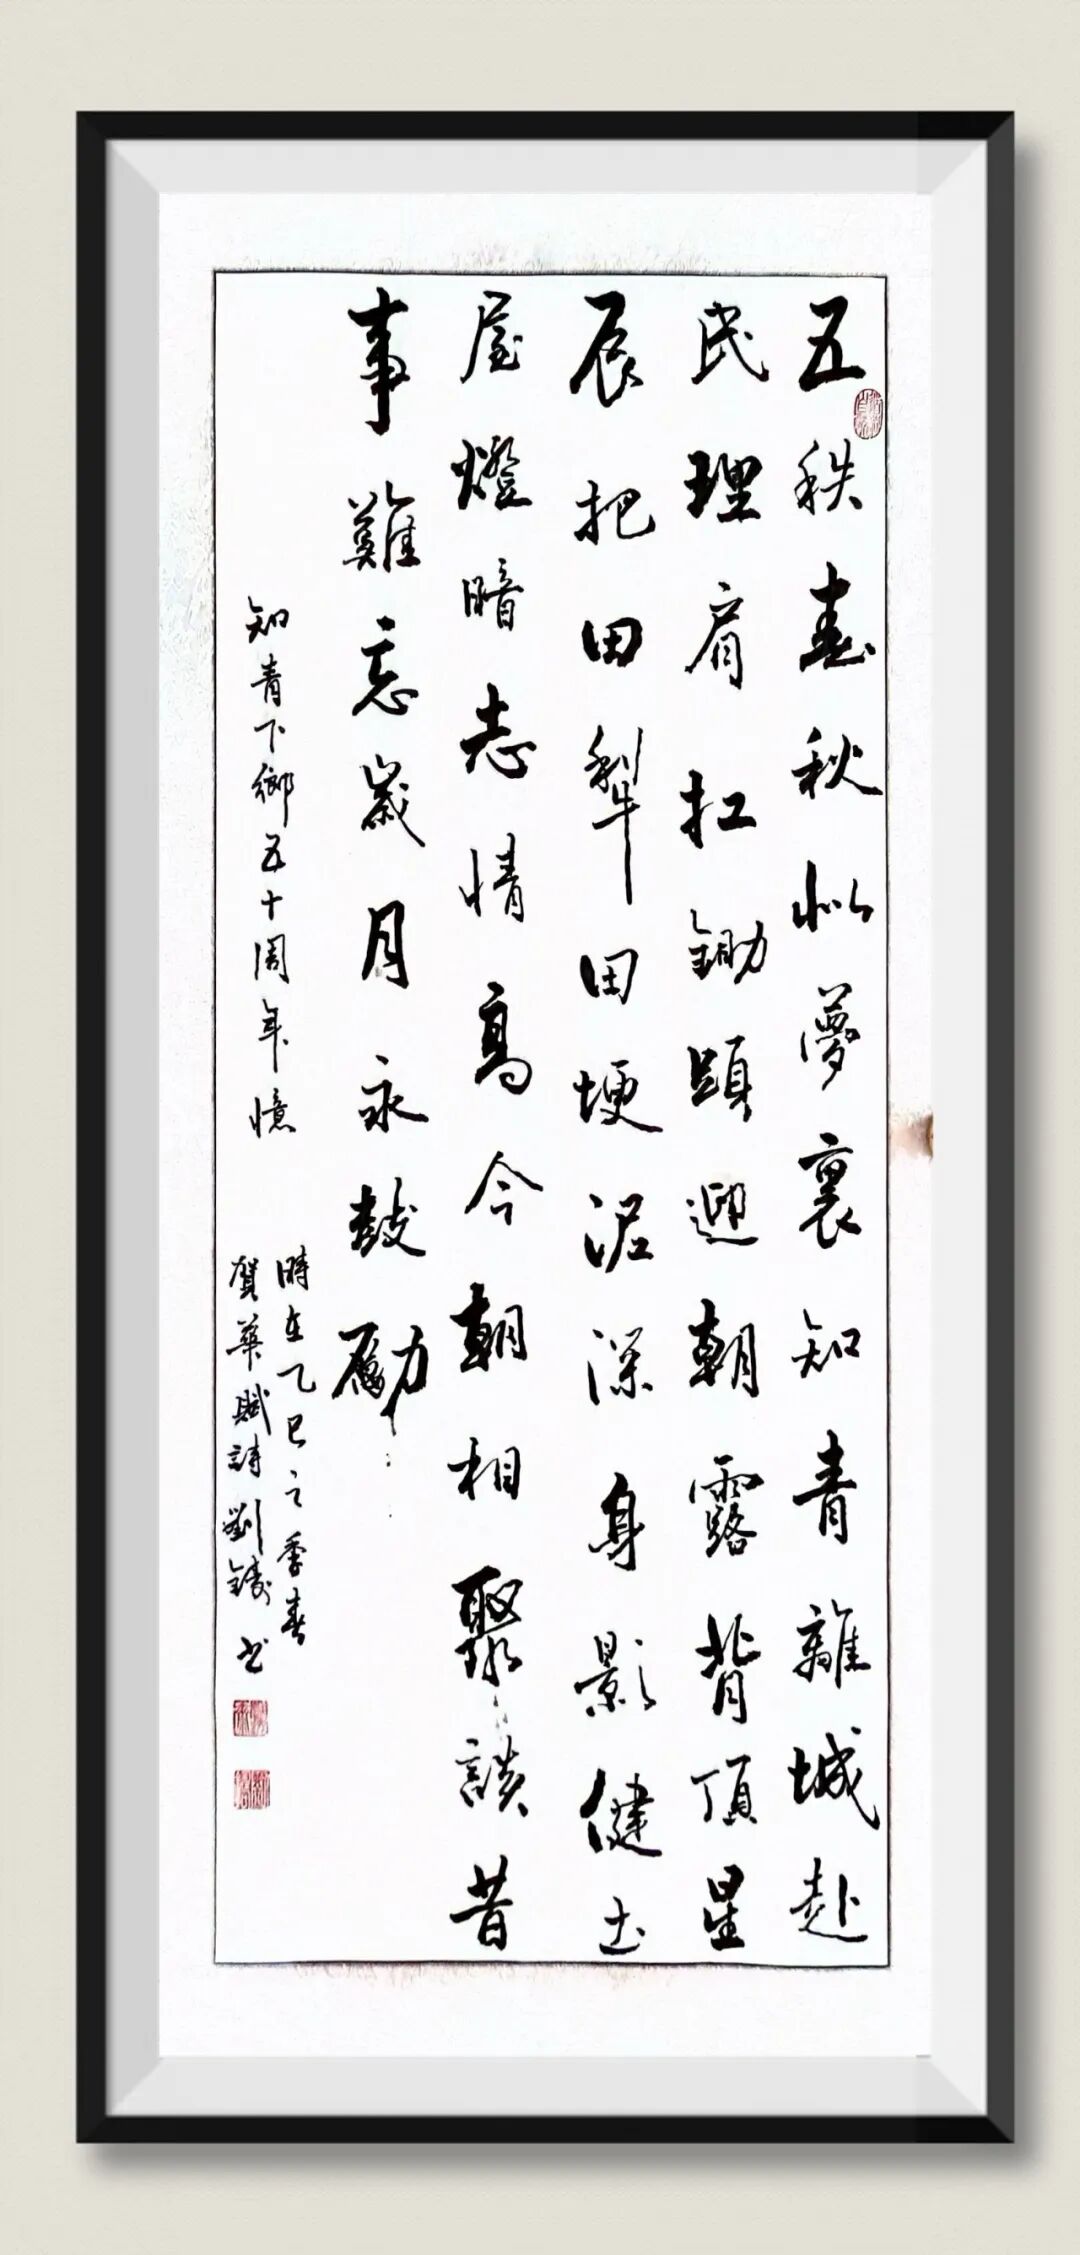 五秩春秋似夢裏知青離城赴
民理肩扛鋤頭迎朝露背頂星
辰把田犁田埂泥深身影健土
屋燈暗志情高今朝相聚談昔
事難忘歲月永鼓勵
知青下鄉五十周年憶
時在乙巳之季春
賀華賦詩劉鑄書